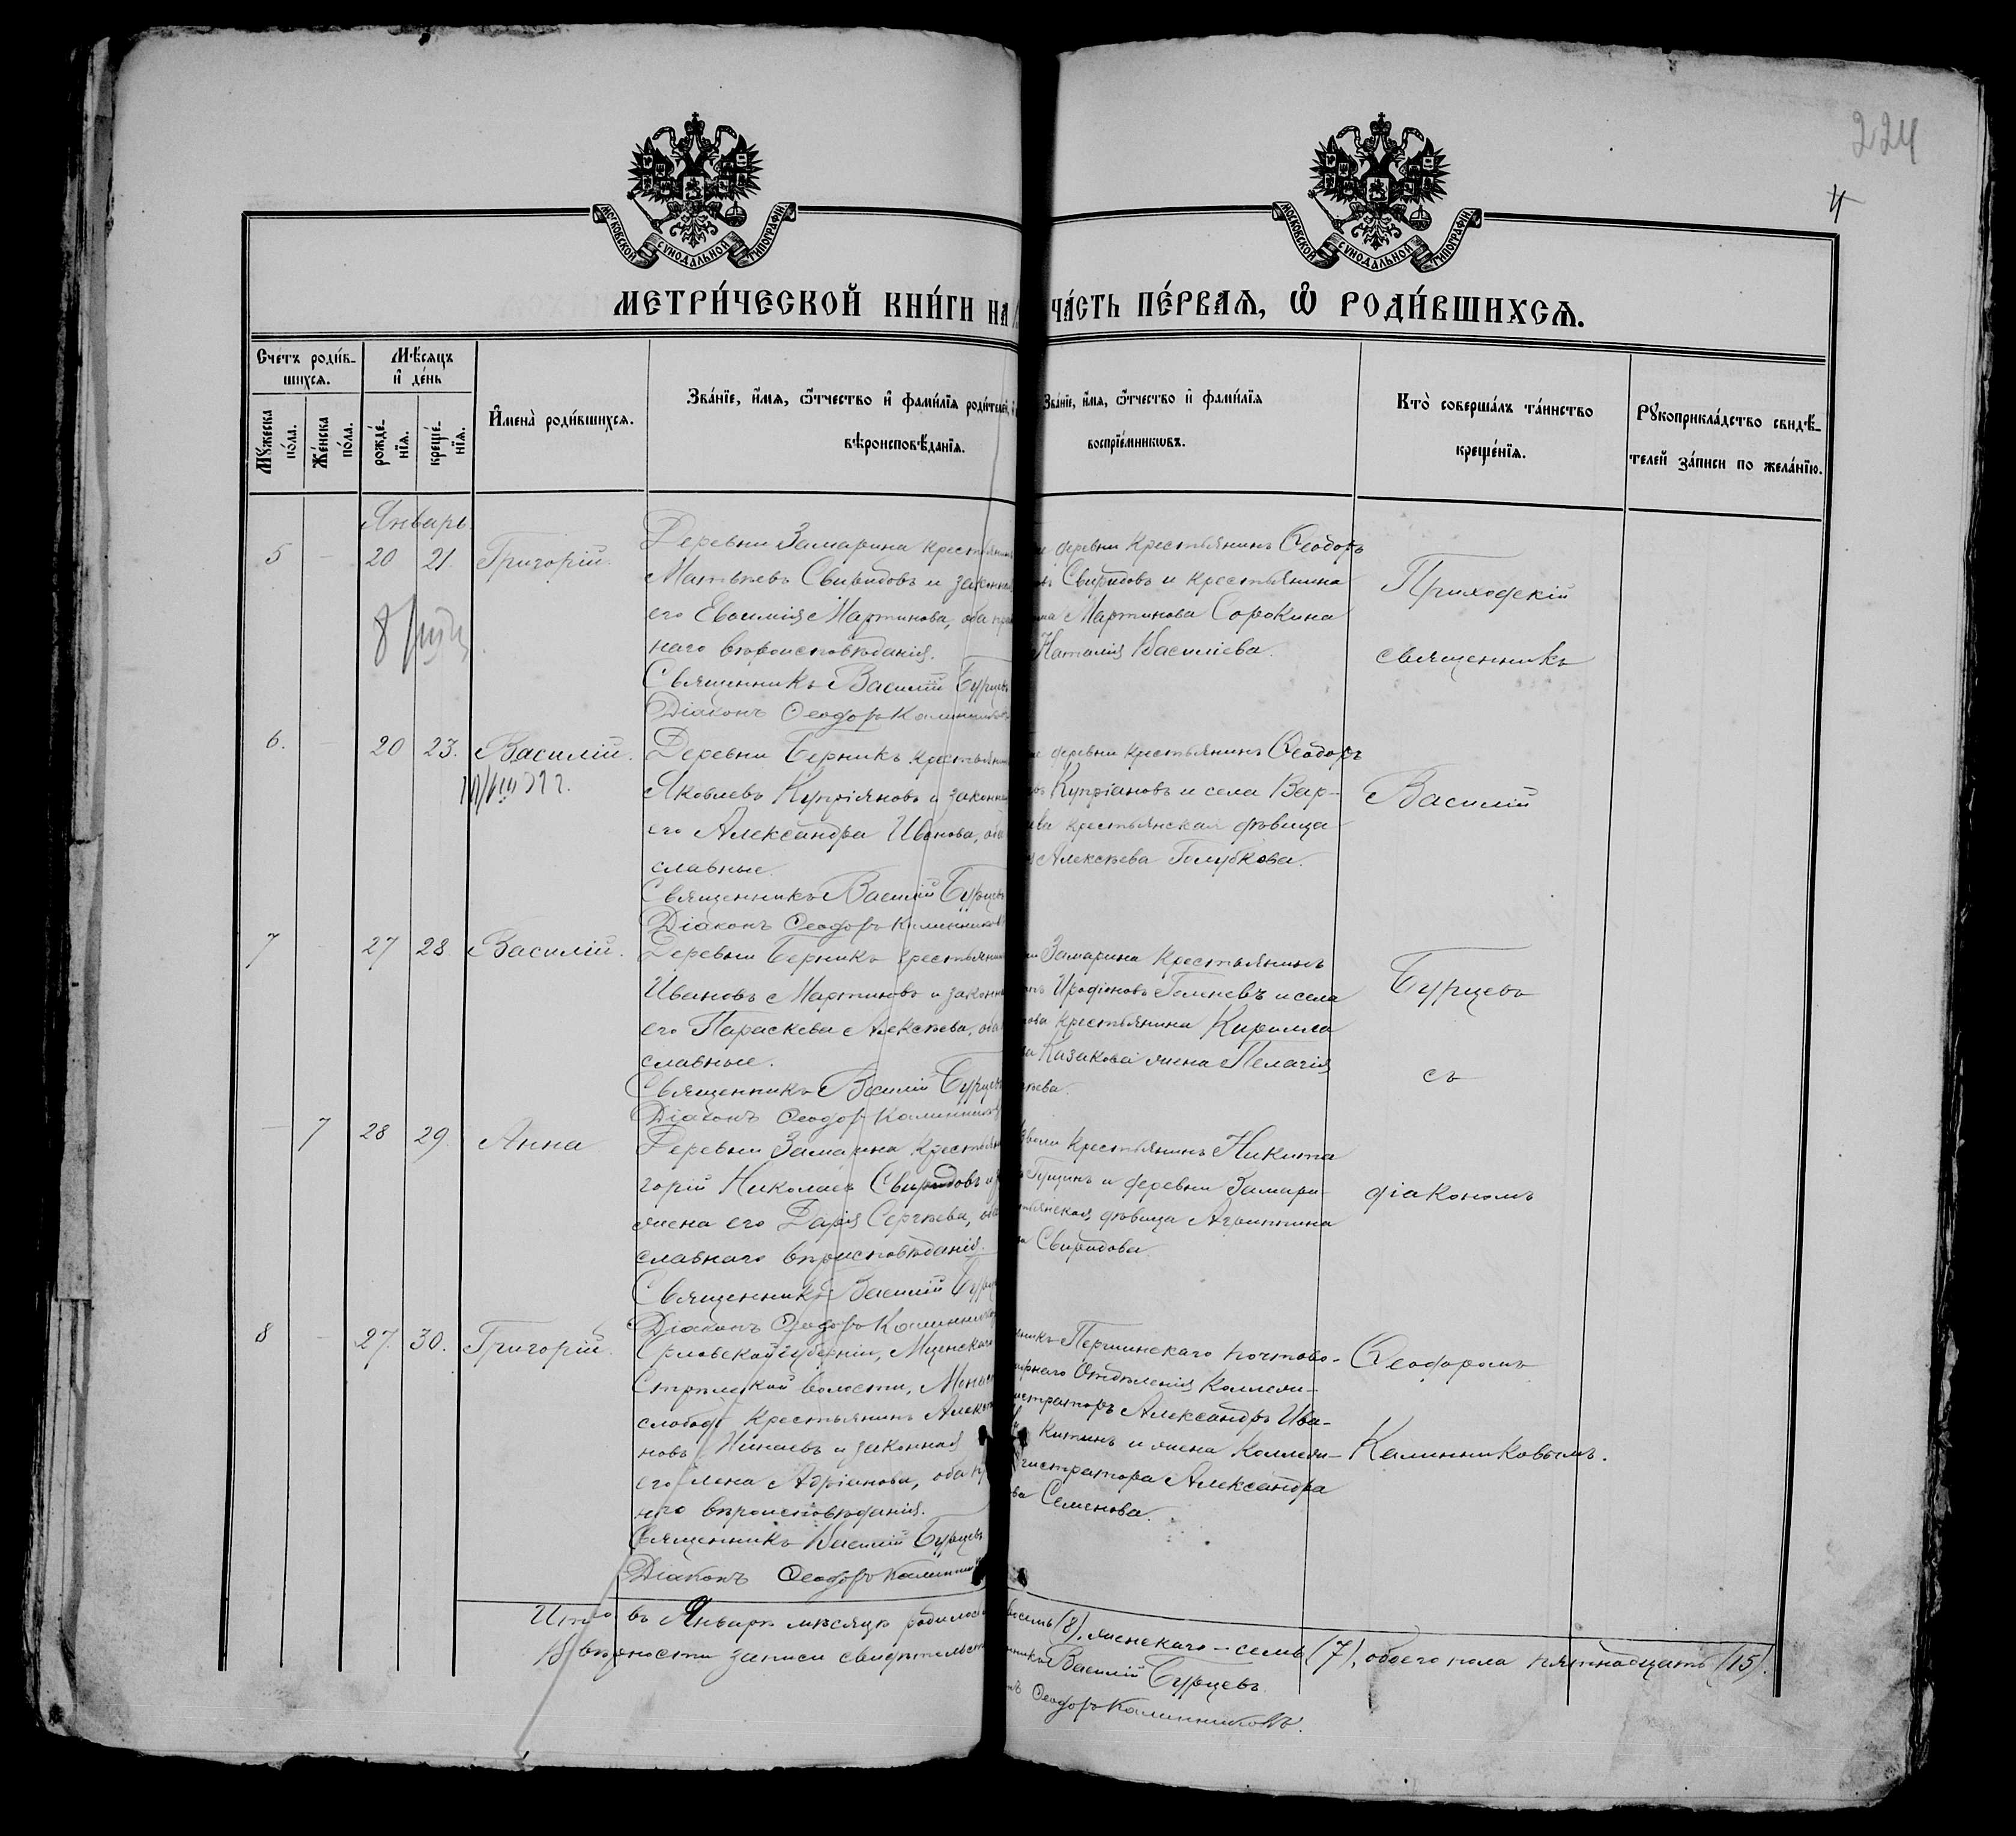 224
4
МОСКОВСКОЙ СѴНОДАЛЬНОЙ ТИПОГРАФІИ
МОСКОВСКОЙ СѴНОДАЛЬНОЙ ТИПОГРАФІИ
МЕТРИ́ЧЕСКОЙ КНИ́ГИ НА
ЧА́СТЬ ПЕ́РВАѦ, Ѡ҆ РОДИ́ВШИХСѦ.
Сче́тъ роди́в-
шихсѧ.
Мѣ́сѧцъ
и҆ де́нь
Мꙋ́жеска
по́ла.
Же́нска
по́ла.
рожде́-
нїѧ.
креще́-
нїѧ.
И҆мена̀ роди́вшихсѧ.
Зва́нїе, и҆́мѧ, ѻ҆́тчество и҆ фами́лїѧ роди́телей,
вѣроисповѣ́данїѧ.
Зва́нїе, и҆́мѧ, ѻ҆́тчество и҆ фами́лїѧ
воспрїе́мникѡвъ.
Кто̀ соверша́лъ та́инство
креще́нїѧ.
Рꙋкоприкла́дство свидѣ́-
телей за́писи по жела́нїю.
Январь
5 - 20 21. Григорій.
Деревни Замарина крестьянин
Матвѣевъ Свиридовъ и законная
его Евѳимія Мартинова, оба прав
наго вѣроисповѣданія.
Священникъ Василій Бурцевъ
Діаконъ Ѳеодоръ Калинников
деревни крестьянинъ Ѳеодоръ
Свиридовъ и крестьянина
Мартинова Сорокина
Наталія Василіева.
Приходскій
священникъ
6. - 20 23. Василій.
Деревни Берникъ крестьянин
Яковлевъ Купріяновъ и законная
его Александра Иванова, оба
славные.
Священникъ Василій Бурцевъ
Діаконъ Ѳеодоръ Калинников
деревни крестьянинъ Ѳеодоръ
Купріановъ и села Вар-
крестьянская дѣвица
Алексѣева Голубкова.
Василій
7 - 27 28 Василій.
Деревни Берникъ крестьянин
Ивановъ Мартиновъ и законная
его Параскева Алексѣева, оба
славные.
Священникъ Василій Бурцевъ
Діаконъ Ѳеодоръ Калинников
Замарина крестьянинъ
Иродіоновъ и села
крестьянина Кирилла
Казакова жена Пелагія
Бурцевъ
съ
- 7 28 29. Анна
Деревни Замарина крестьян
горій Николаевъ Свиридовъ и
жена его Дарія Сергѣева, оба
славнаго вѣроисповѣданія.
Священникъ Василій Бурц
Діаконъ Ѳеодоръ Калинников
крестьянинъ Никита
и деревни Замари-
дѣвица Агриппина
Свиридова.
діакономъ
8 - 27. 30. Григорій.
Орловской губерніи, Мценскаго
Стрѣлецкой волости,
слободы крестьянинъ Алекс
новъ и законная
его Елена Адріанова, оба пр
наго вѣроисповѣданія.
Священникъ Василій Бурцевъ
Діаконъ Ѳеодоръ Калинник
Першинскаго почтово-
Отдѣленія Коллеж-
Александръ Ива-
Китинъ и жена Коллеж-
гистратора Александра
Семенова.
Ѳеодоромъ
Калинниковымъ.
Итого въ Январѣ мѣсяцѣ родилось
восемь (8), женскаго - семь (7), обоего пола пятнадцать (15).
Въ вѣрности записи свидѣтельст
Василій Бурцевъ.
Ѳеодоръ Калинниковъ.